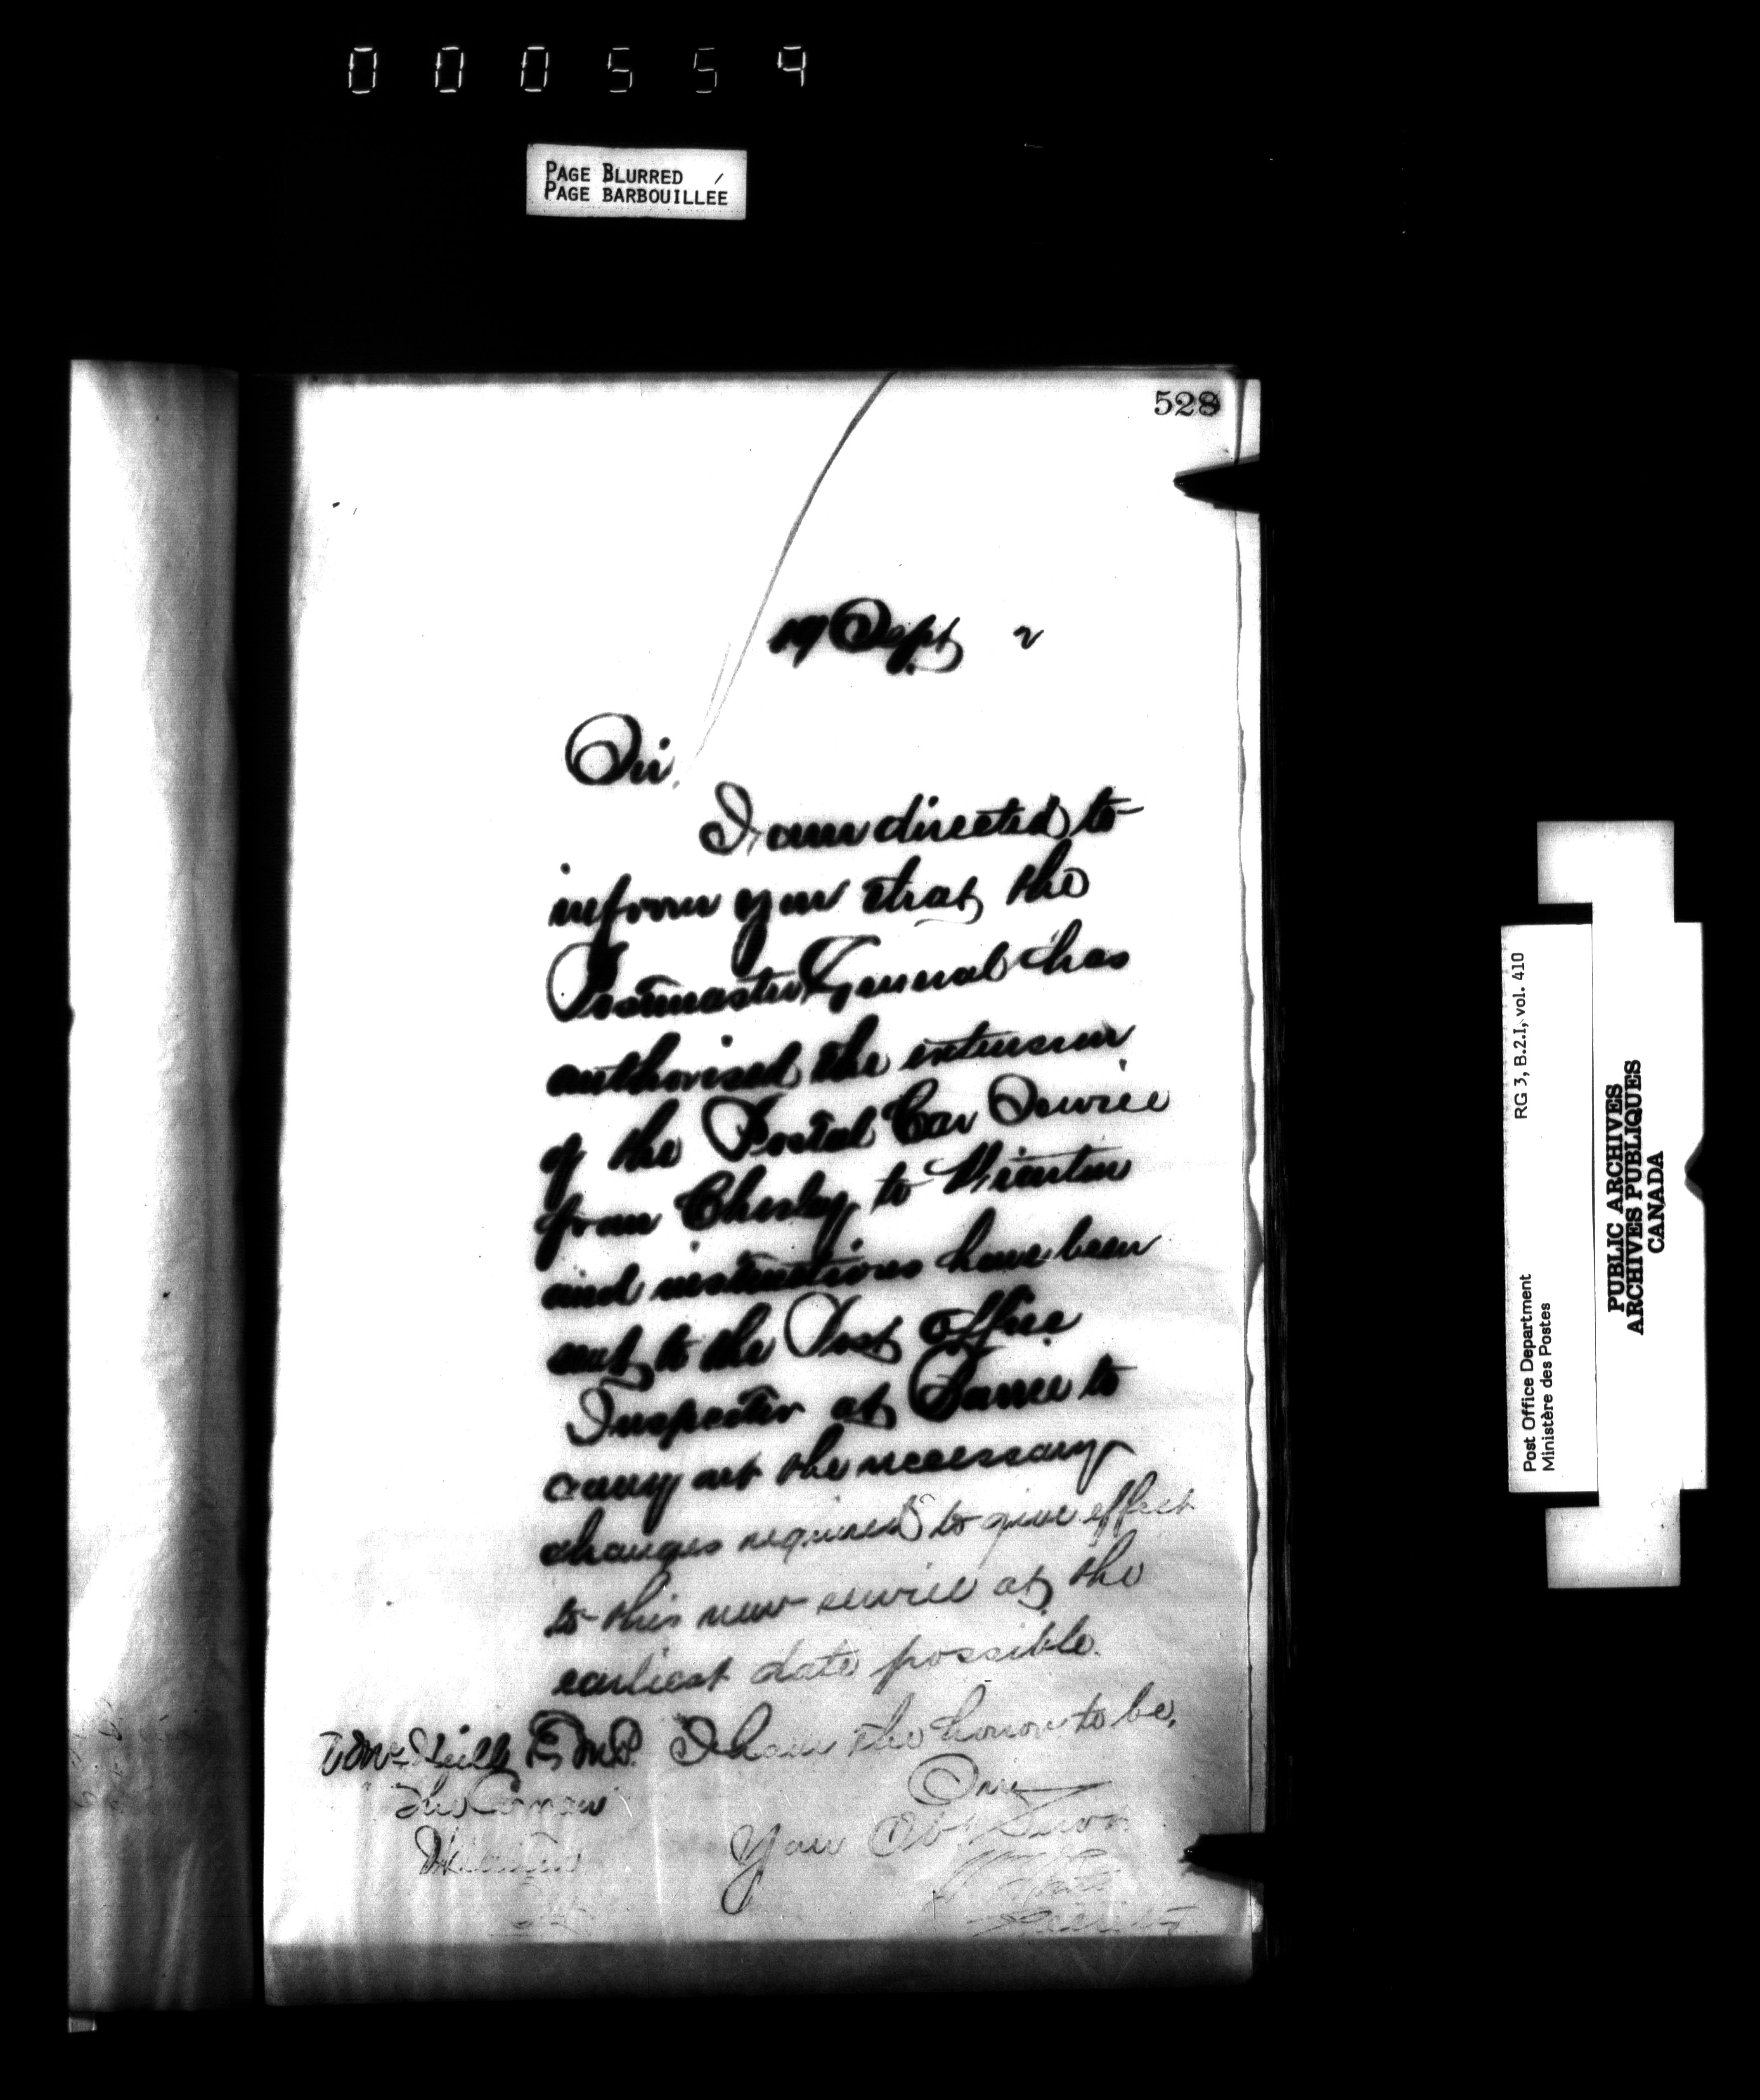 000559
PAGE BLURRED
PAGE BARBOUILLÉE
528
19 Sept 2
Sir.
I am directed to
inform you that the
Postmaster General has
authorised the extension
of the Postal Car Service
from Chesley to Wiarton
and instructions have been
sent to the Post Office
Inspector at Barrie to
carry out the necessary
changes required to give effect
to this new service at the
earliest date possible.
I have the honor to be,
Sir
Your Obt Servt
McNeill Esq M.P.
The Corran
Wiarton
RG 3, B.2.I, vol. 410
Post Office Department
Ministère des Postes
PUBLIC ARCHIVES
ARCHIVES PUBLIQUES
CANADA